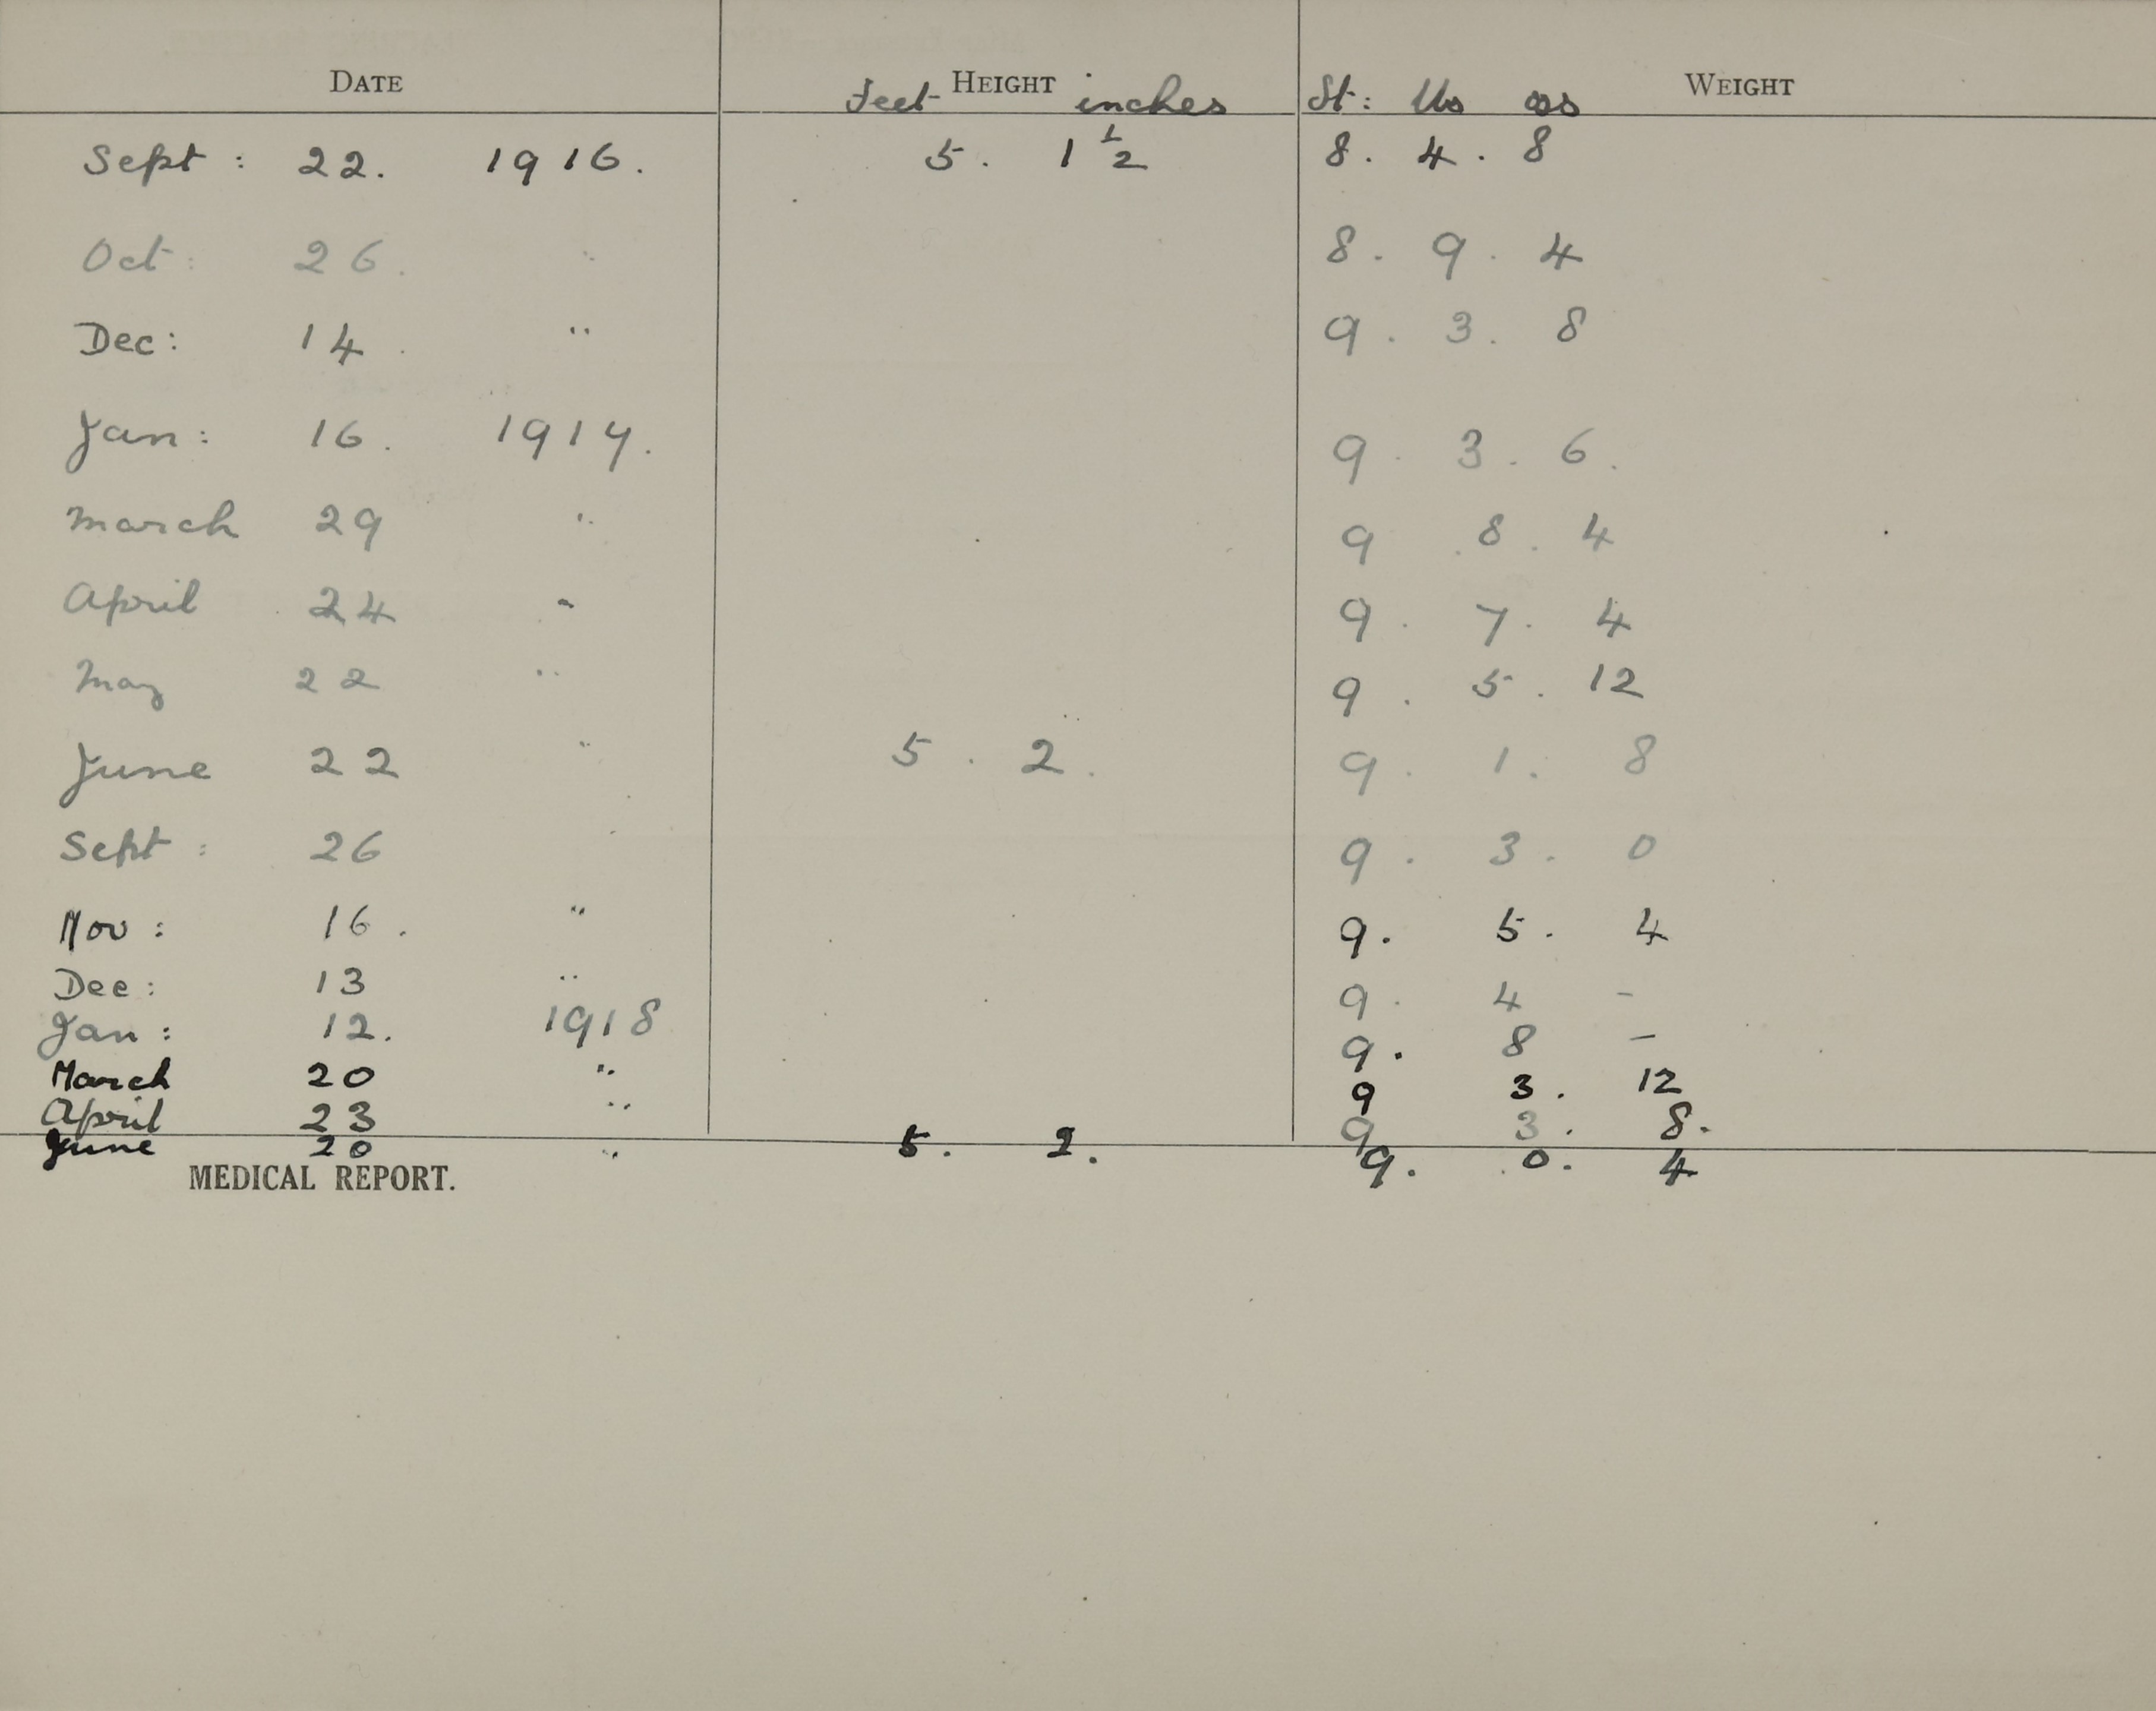 DATE HEIGHT WEIGHT
Feet inches St: lbs ozs
Sept: 22. 1916. 5. 1 ½ 8. 4. 8
Oct: 26. " 8. 9. 4
Dec: 14. " 9. 3. 8
Jan: 16. 1917. 9. 3. 6.
March 29 " 9 . 8 . 4
April 24 " 9. 7. 4
May 22 " 9. 5. 12
June 22 " 5. 2. 9. 1. 8
Sept: 26 " 9. 3. 0
Nov: 16. " 9. 5. 4
Dec: 13 " 9. 4 -
Jan: 12. 1918 9. 8 -
March 20 " 9 3. 12
April 23 " 9 3. 8.
June 20 " 5. 2. 9. 0. 4
MEDICAL REPORT.